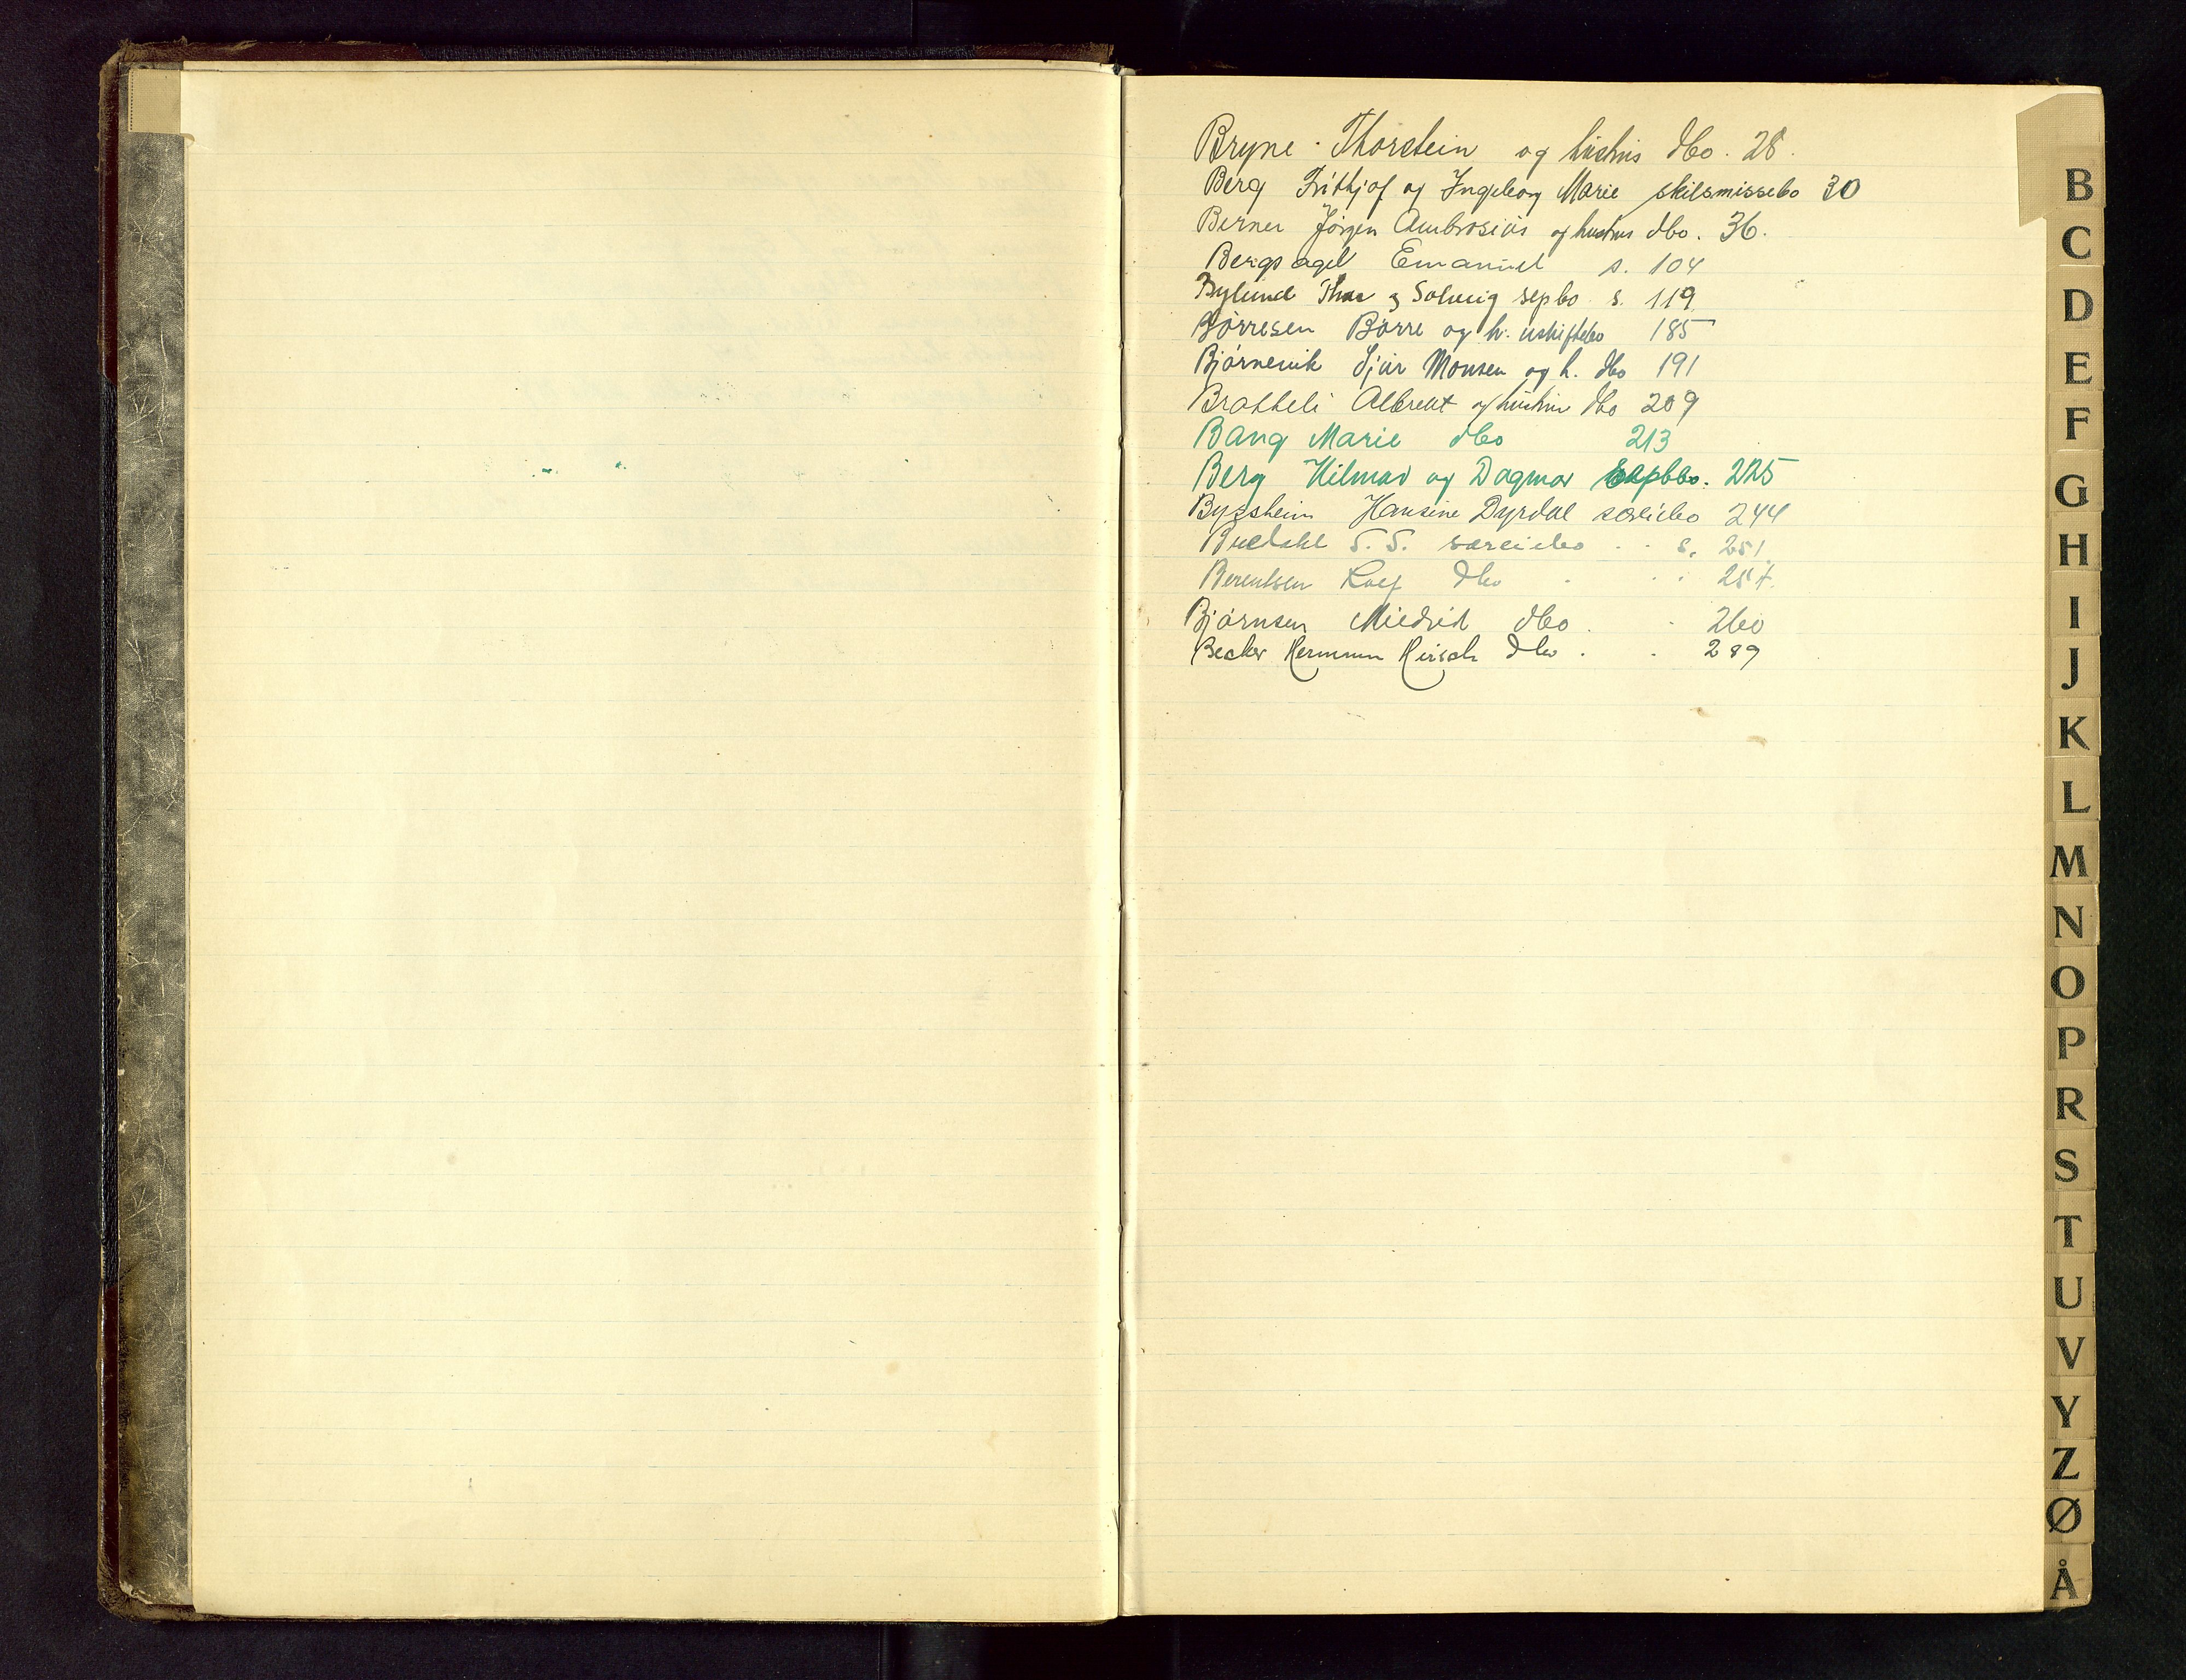 Bryne Thorstein og hustrus dbo. 28.
Berg Fritjof og Ingeborg Marie skilsmissebo 30
Berner Jörgen Ambrosius og hustrus dbo. 36.
Bergsagel Emanuel s. 104
Bylund Thor og Solveig sepbo s. 119
Börresen Börre og h. uskiftebo 185
Björnevik Sjur Monsen og h. dbo 191
Bratteli Albrekt og hustru dbo 209
Bang Marie dbo 213
Berg Hilmar og Dagmar sepbo. 225
Byssheim Hansine Dyrdal særeiebo 244
S. S. særeiebo s. 251
Berentsen Leif dbo
Björnsen Mildrid dbo. 260
Becker Herman Hirsch dbo. 289
B
C
D
E
F
G
H
I
J
K
L
M
N
O
P
R
S
T
U
V
Y
Z
Ø
Å